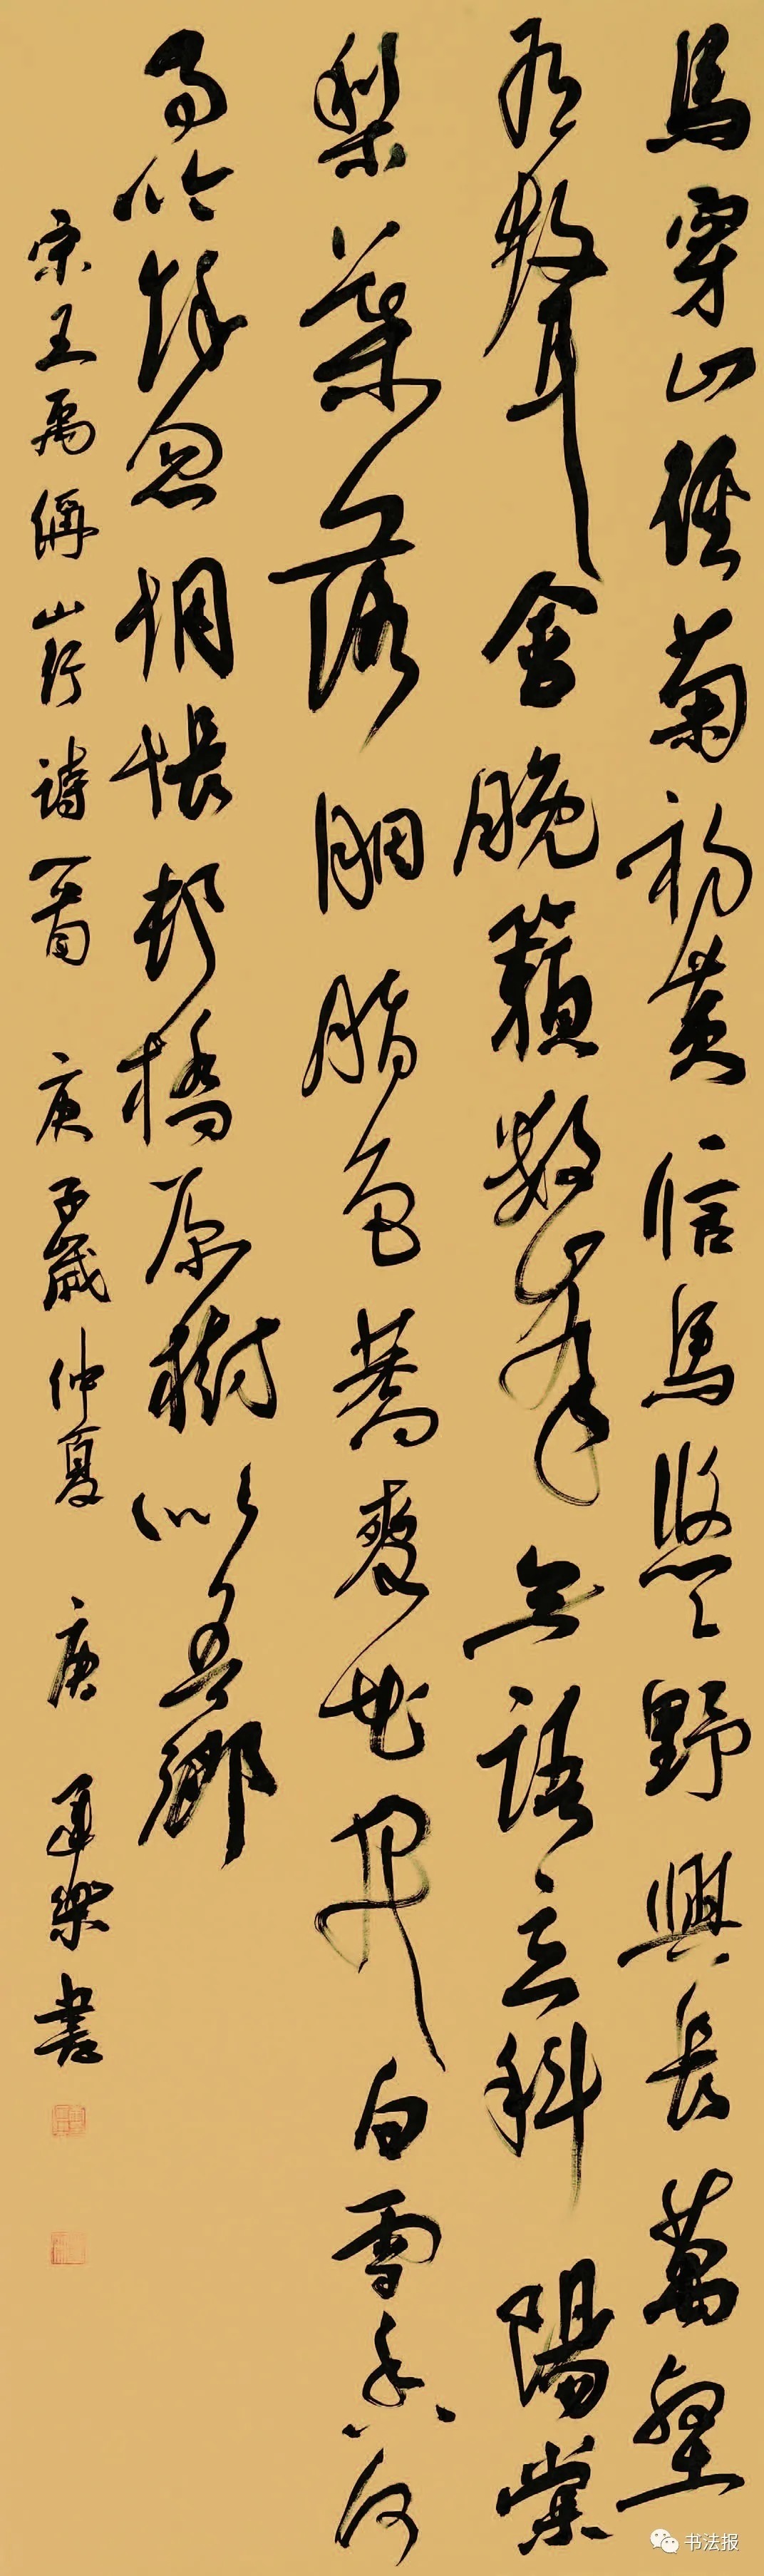 馬穿山徑菊初黃信馬悠悠野興長萬壑
有聲含晚籟數峯無語立斜陽棠
梨葉落胭脂色蕎麥花開白雪香何
事吟餘忽惆悵邨橋原樹似吾鄉
宋王禹偁山行詩一首 庚子歲仲夏 唐 樂書
书法报